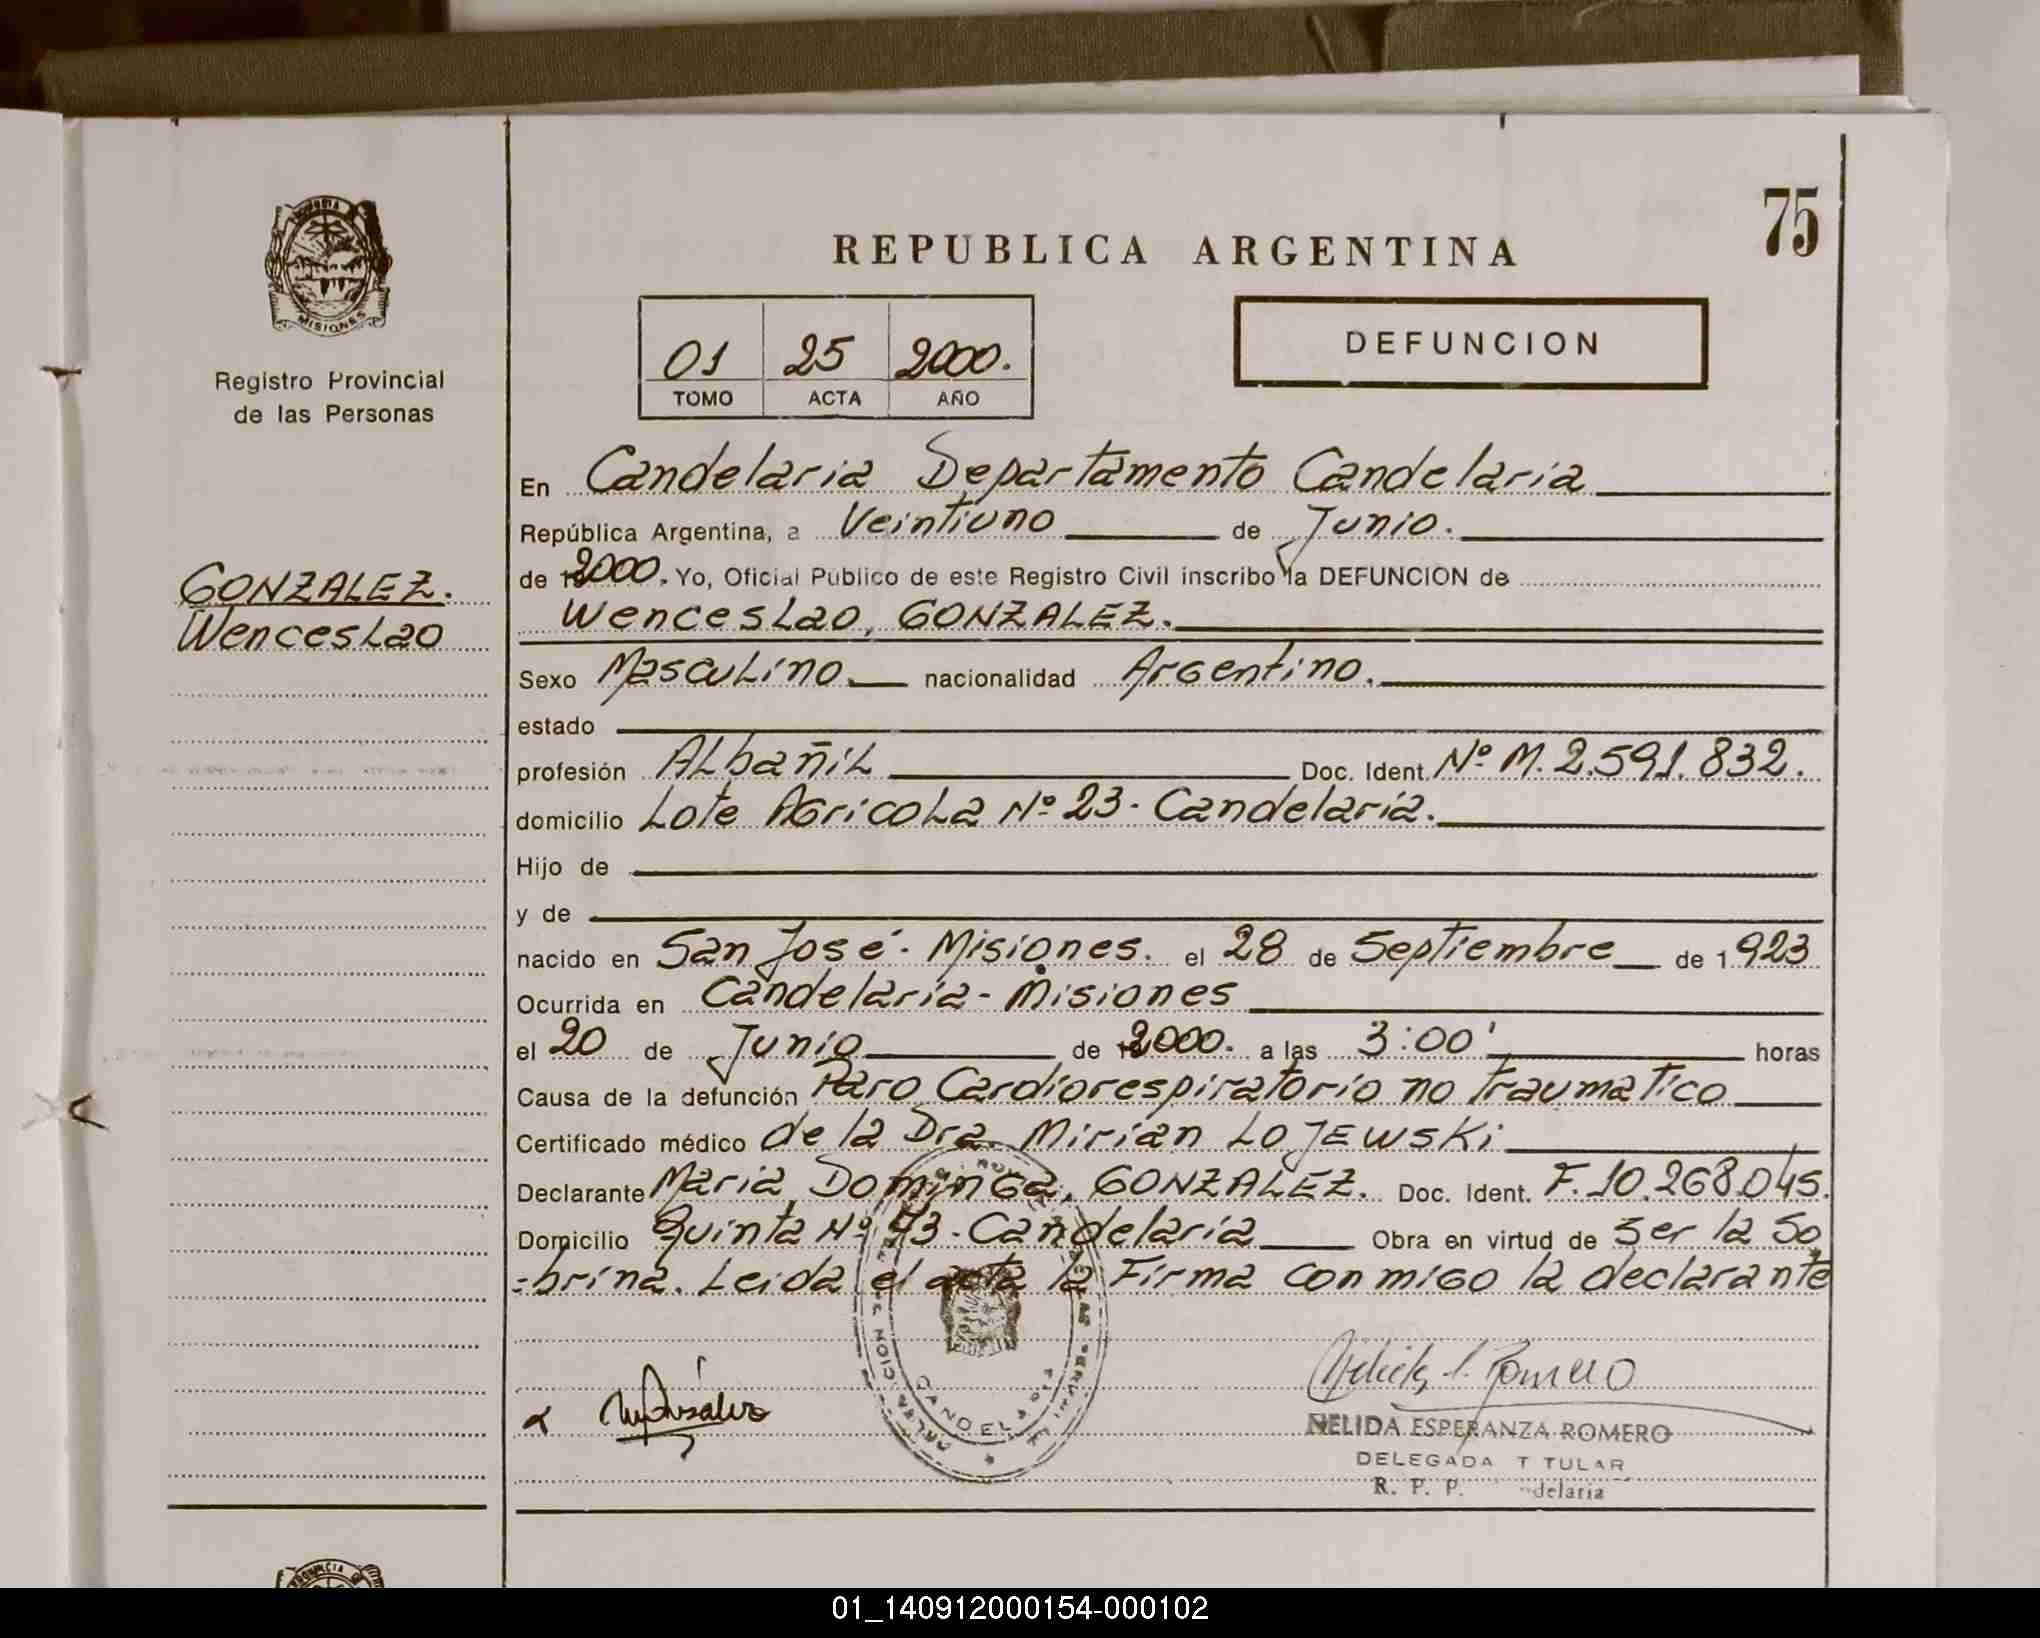 75
REPUBLICA ARGENTINA
MISIONES
Registro Provincial
de las Personas
01 25 2000.
TOMO ACTA AÑO
DEFUNCION
GONZALEZ.
Wenceslao
En Candelaria Departamento Candelaria
República Argentina, a Veintiuno de Junio.
de 2000. Yo, Oficial Público de este Registro Civil inscribo la DEFUNCION de
Wenceslao, GONZALEZ.
Sexo Masculino. nacionalidad Argentino.
estado
profesión Albañil Doc. Ident. Nº M. 2.591.832.
domicilio Lote Agricola Nº 23. Candelaria.
Hijo de
y de
nacido en San José. Misiones. el 28 de Septiembre de 1923
Ocurrida en Candelaria - Misiones
el 20 de Junio de 2000. a las 3:00' horas
Causa de la defunción Paro Cardiorespiratorio no traumatico
Certificado médico de la Dra. Mirian LOJEWSKi
Declarante Maria Dominga, GONZALEZ. Doc. Ident. F. 10.268.045.
Domicilio Quinta Nº 43. Candelaria Obra en virtud de ser la So
=brina. Leida el acta la Firma conmigo la declarante
NELIDA ESPERANZA ROMERO
DELEGADA T TULAR
R. P. P. delaria
CANDELARIA
01_140912000154-000102